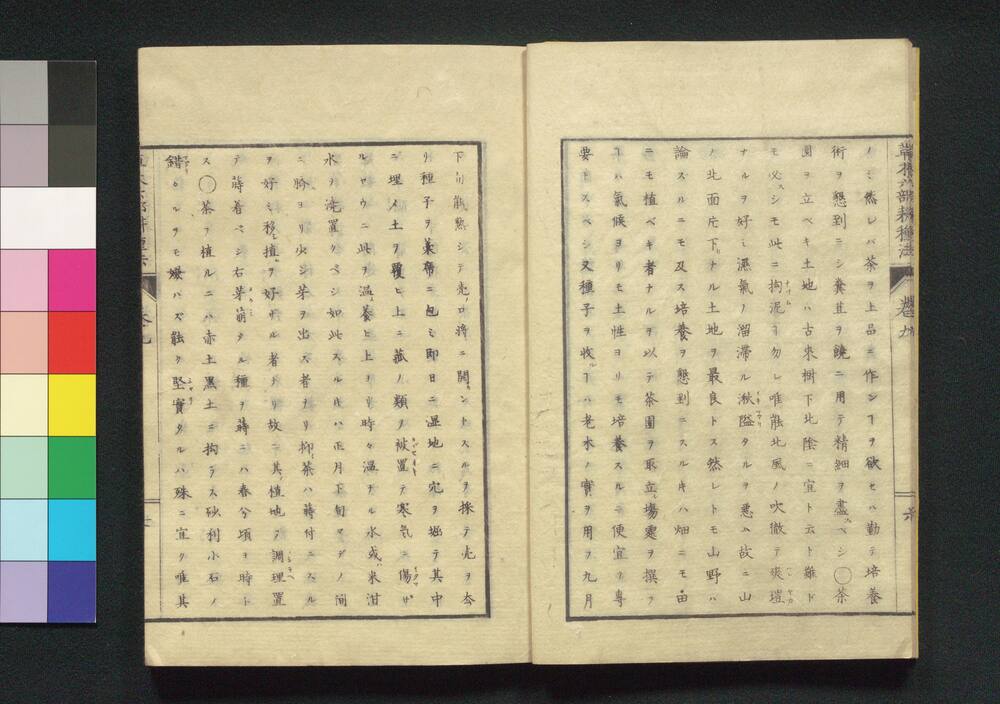 草木六部耕種法 巻九
ノミ然レバ茶ヲ上品ニ作ンヿヲ欲セハ勤テ培養
術ヲ懇到ニシ糞苴ヲ饒ニ用テ精細ヲ盡スベシ〇茶
園ヲ立ベキ土地ハ古来樹下北陰ニ宜ト云ト雖ド
モ必スシモ此ニ拘泥ナヅムヿ勿レ唯能北風ノ吹徹テ爽塏
ナルヲ好ミ濕氣ノ溜滞ル湫隘タルヲ悪ム故ニ山
ノ北面片下リナル土地ヲ最良トス然レトモ山野ハ
論スルニモ及ス培養ヲ懇到ニスルキハ畑ニモ田
ニモ植ベキ者ナルヲ以テ茶園ヲ取立ル塲處ヲ撰フ
ヿハ氣候ヨリモ土性ヨリモ培養スルニ便宜ヲ専
要トスベシ又種子ヲ收ルヿハ老木ノ實ヲ用フ九月
下旬能熟シテ売ノ口将ニ開ントスルヲ採テ売ヲ去
リ種子ヲ藁帶ニ包ミ即日ニ湿地ニ穴ヲ掘テ其中
ニ埋メ土ヲ覆ヒ上ニ菰ノ類ヲ被置テ寒気ニ傷ザ
ルヤウニ此ヲ温メ養ヒ上ヨリ時々温メタル水或ハ米泔
水ヲ淹置クベシ如此スルキハ正月下旬マデノ間
ニ臍ヨリ少シ芽ヲ出ス者ナリ抑茶ハ蒔付ニスル
ヲ好ミ移植ヲ好ザル者ナリ故ニ其植地ヲ調理置
テ蒔着ベシ右芽崩タル種ヲ蒔ニハ春分頃ヲ時ト
ス〇茶ヲ植ルニハ赤土黒土ニ拘ラス砂利小石ノ
錯ヿルヲモ嫌ハズ能ク堅實タルハ殊ニ宜ク唯其